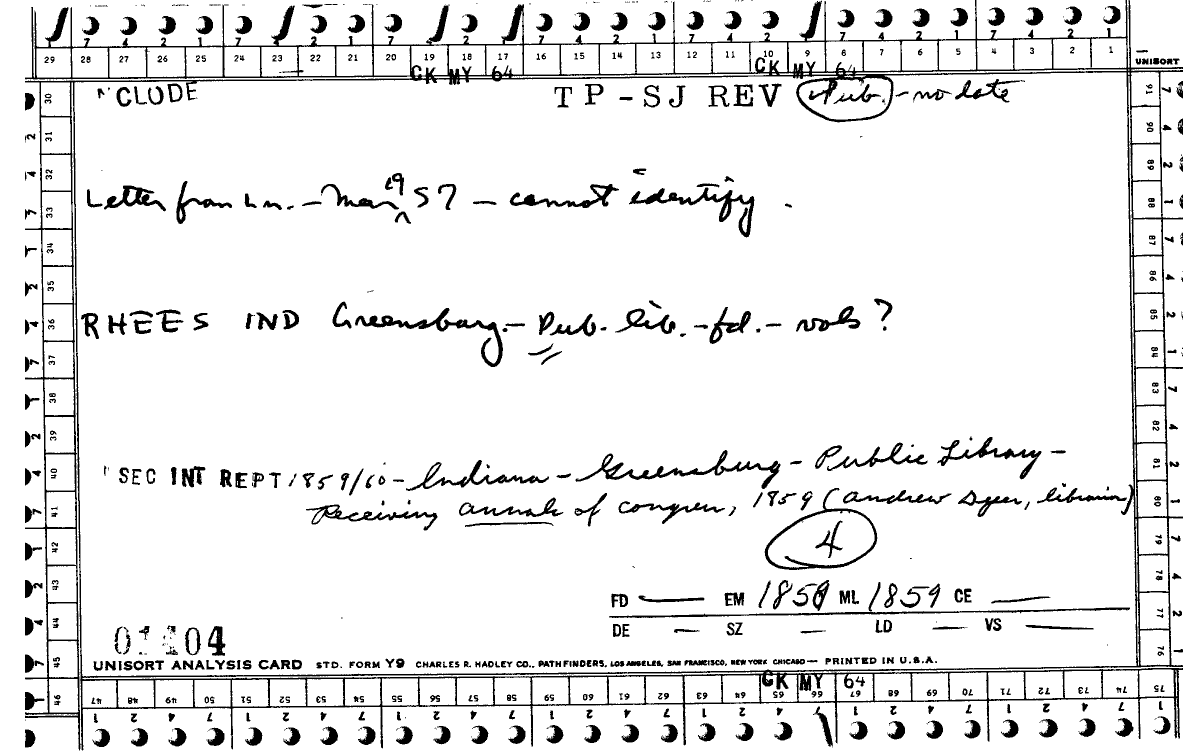 7 4 2 1 7 4 2 1 7 4 2 1 7 4 2 1 7 4 2 1 7 4 2 1
29 28 27 26 25 24 23 22 21 20 19 18 17 16 15 14 13 12 11 10 9 8 7 6 5 4 3 2 1
CK MY 64 CK MY 64 UNISORT
CLODE TP-SJ REV Pub. - no date
Letter from Ln. - Mar 19 57 - cannot identify.
RHEES IND Greensburg. - Pub. lib. - fd. - vols?
SEC INT REPT 1859/60 - Indiana - Greensburg - Public Library -
Receiving annals of congress, 1859 (Andrew Dyer, librarian)
4
FD — EM 1859 ML 1859 CE —
DE — SZ — LD — VS —
01404
UNISORT ANALYSIS CARD STD. FORM Y9 CHARLES R. HADLEY CO., PATHFINDERS, LOS ANGELES, SAN FRANCISCO, NEW YORK CHICAGO — PRINTED IN U.S.A.
CK MY 64
47 48 49 50 51 52 53 54 55 56 57 58 59 60 61 62 63 64 65 66 67 68 69 70 71 72 73 74 75